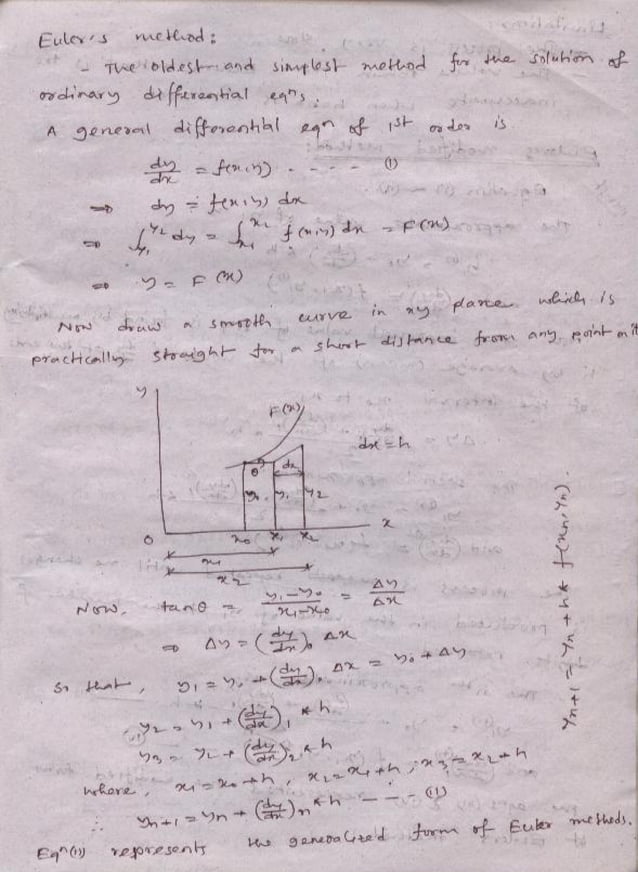 Euler's method:
- The oldest and simplest method for the solution of
ordinary differential eqns.
A general differential eqn of 1st order is
dy/dx = f(x,y) - - - - (1)
⇒ dy = f(x,y) dx
⇒ ∫_{y1}^{y2} dy = ∫_{x1}^{x2} f(x,y) dx = F(x)
⇒ y = F(x)
Now draw a smooth curve in xy plane which is
practically straight for a short distance from any point on it
y
F(x)
dx = h
θ dx
y0 y1 y2
O x0 x1 x2 x
x1
x2
Now, tanθ = (y1-y0)/(x1-x0) = Δy/Δx
⇒ Δy = (dy/dx)0 Δx
so that, y1 = y0 + (dy/dx)0 Δx = y0 + Δy
y2 = y1 + (dy/dx)1 * h
y3 = y2 + (dy/dx)2 * h
where, x1 = x0 + h, x2 = x1 + h, x3 = x2 + h
∴ yn+1 = yn + (dy/dx)n * h - - - (11)
Eqn(11) represents the generalized form of Euler methods.
yn+1 = yn + h * f(xn, yn).